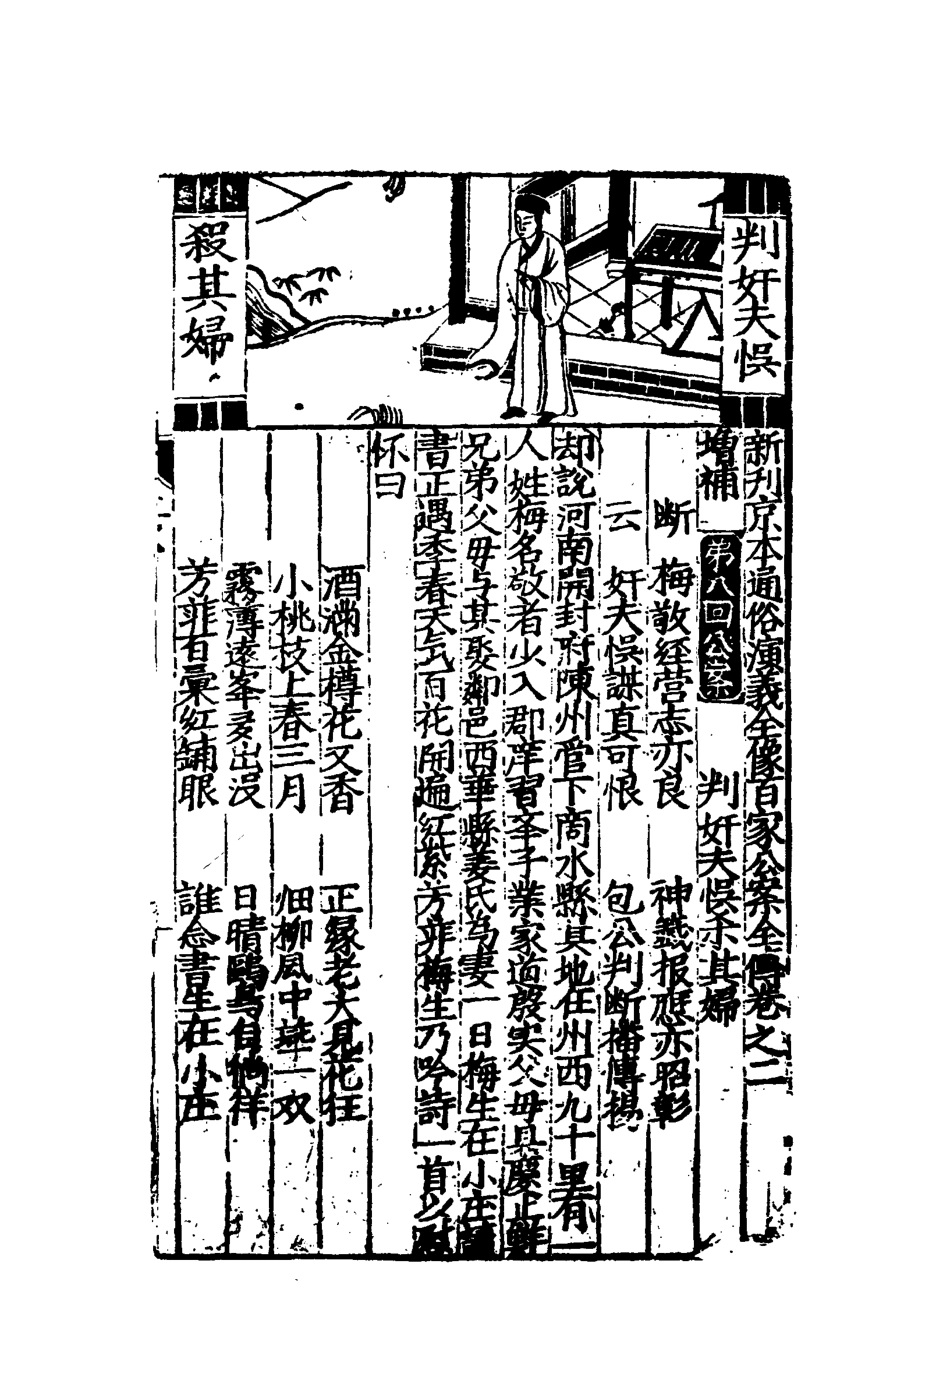 判奸夫悞
殺其婦
新刋京本通俗演義全像百家公案全傳卷之二
增補 第八回公案 判奸夫悞杀其婦
断 梅敬經营志亦良 神䰢报應亦昭彰
云 奸夫悞謀真可恨 包公判断播傳揚
却說河南開封府陳州管下商水縣其地在州西九十里有一
人姓梅名敬者少入郡庠習举子業家道殷实父毋具慶止鮮
兄弟父毋与其娶鄰邑西華縣姜氏為妻一日梅生在小庄讀
書正遇季春天气百花開遍红紫芳菲梅生乃吟詩一首以
怀曰
酒滿金樽花又香 正縁老大見花狂
小桃枝上春三月 细柳風中燕一双
霧薄遠峯多出没 日晴鷗鳥自徜徉
芳菲百彙红鋪眼 誰念書生在小庄